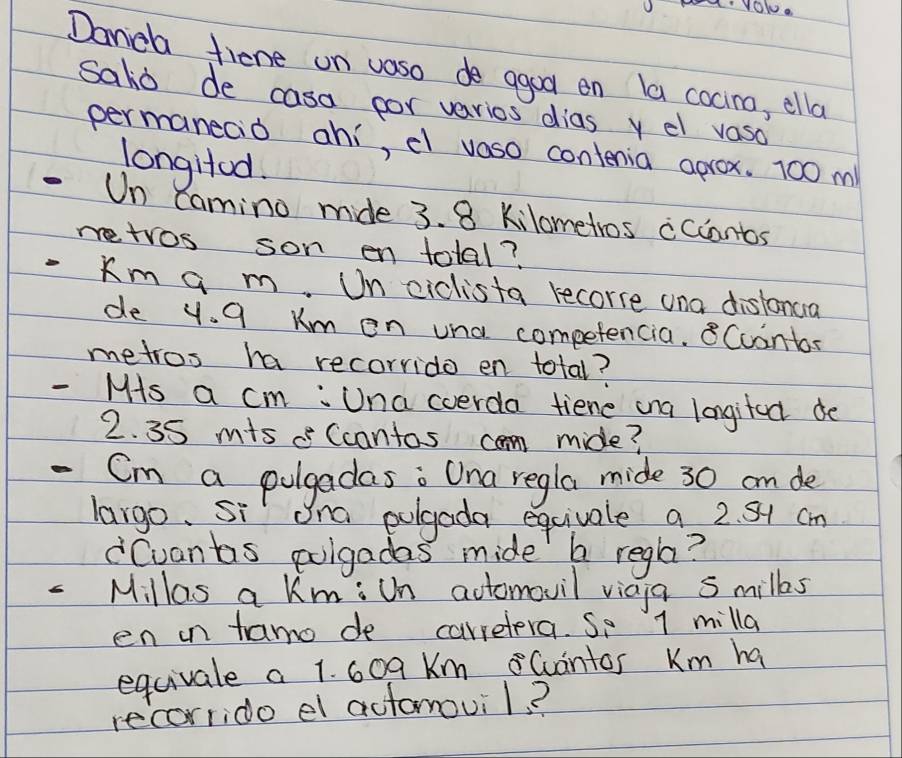 Volu.
Daniela tiene un vaso de agua en la cocina, ella
salió de casa por varios dias y el vaso
permaneció ahí, el vaso contenia aprox. 100 ml
longitud.
- Un camino mide 3.8 Kilometros ¿Cuántos
metros son en total?
- Km a m. Un ciclista recorre una distancia
de 4.9 Km en una competencia. ¿Cuántos
metros ha recorrido en total?
- Mts a cm : Una cuerda tiene una longitud de
2.35 mts ¿Cuantos cm mide?
- Cm a pulgadas : Una regla mide 30 cm de
largo. Si una pulgada equivale a 2.54 cm
¿Cuantas pulgadas mide la regla?
- Millas a Km : Un automovil viaja 5 millas
en un tramo de carretera. Si 1 milla
equivale a 1.609 Km ¿Cuántos Km ha
recorrido el automovil?